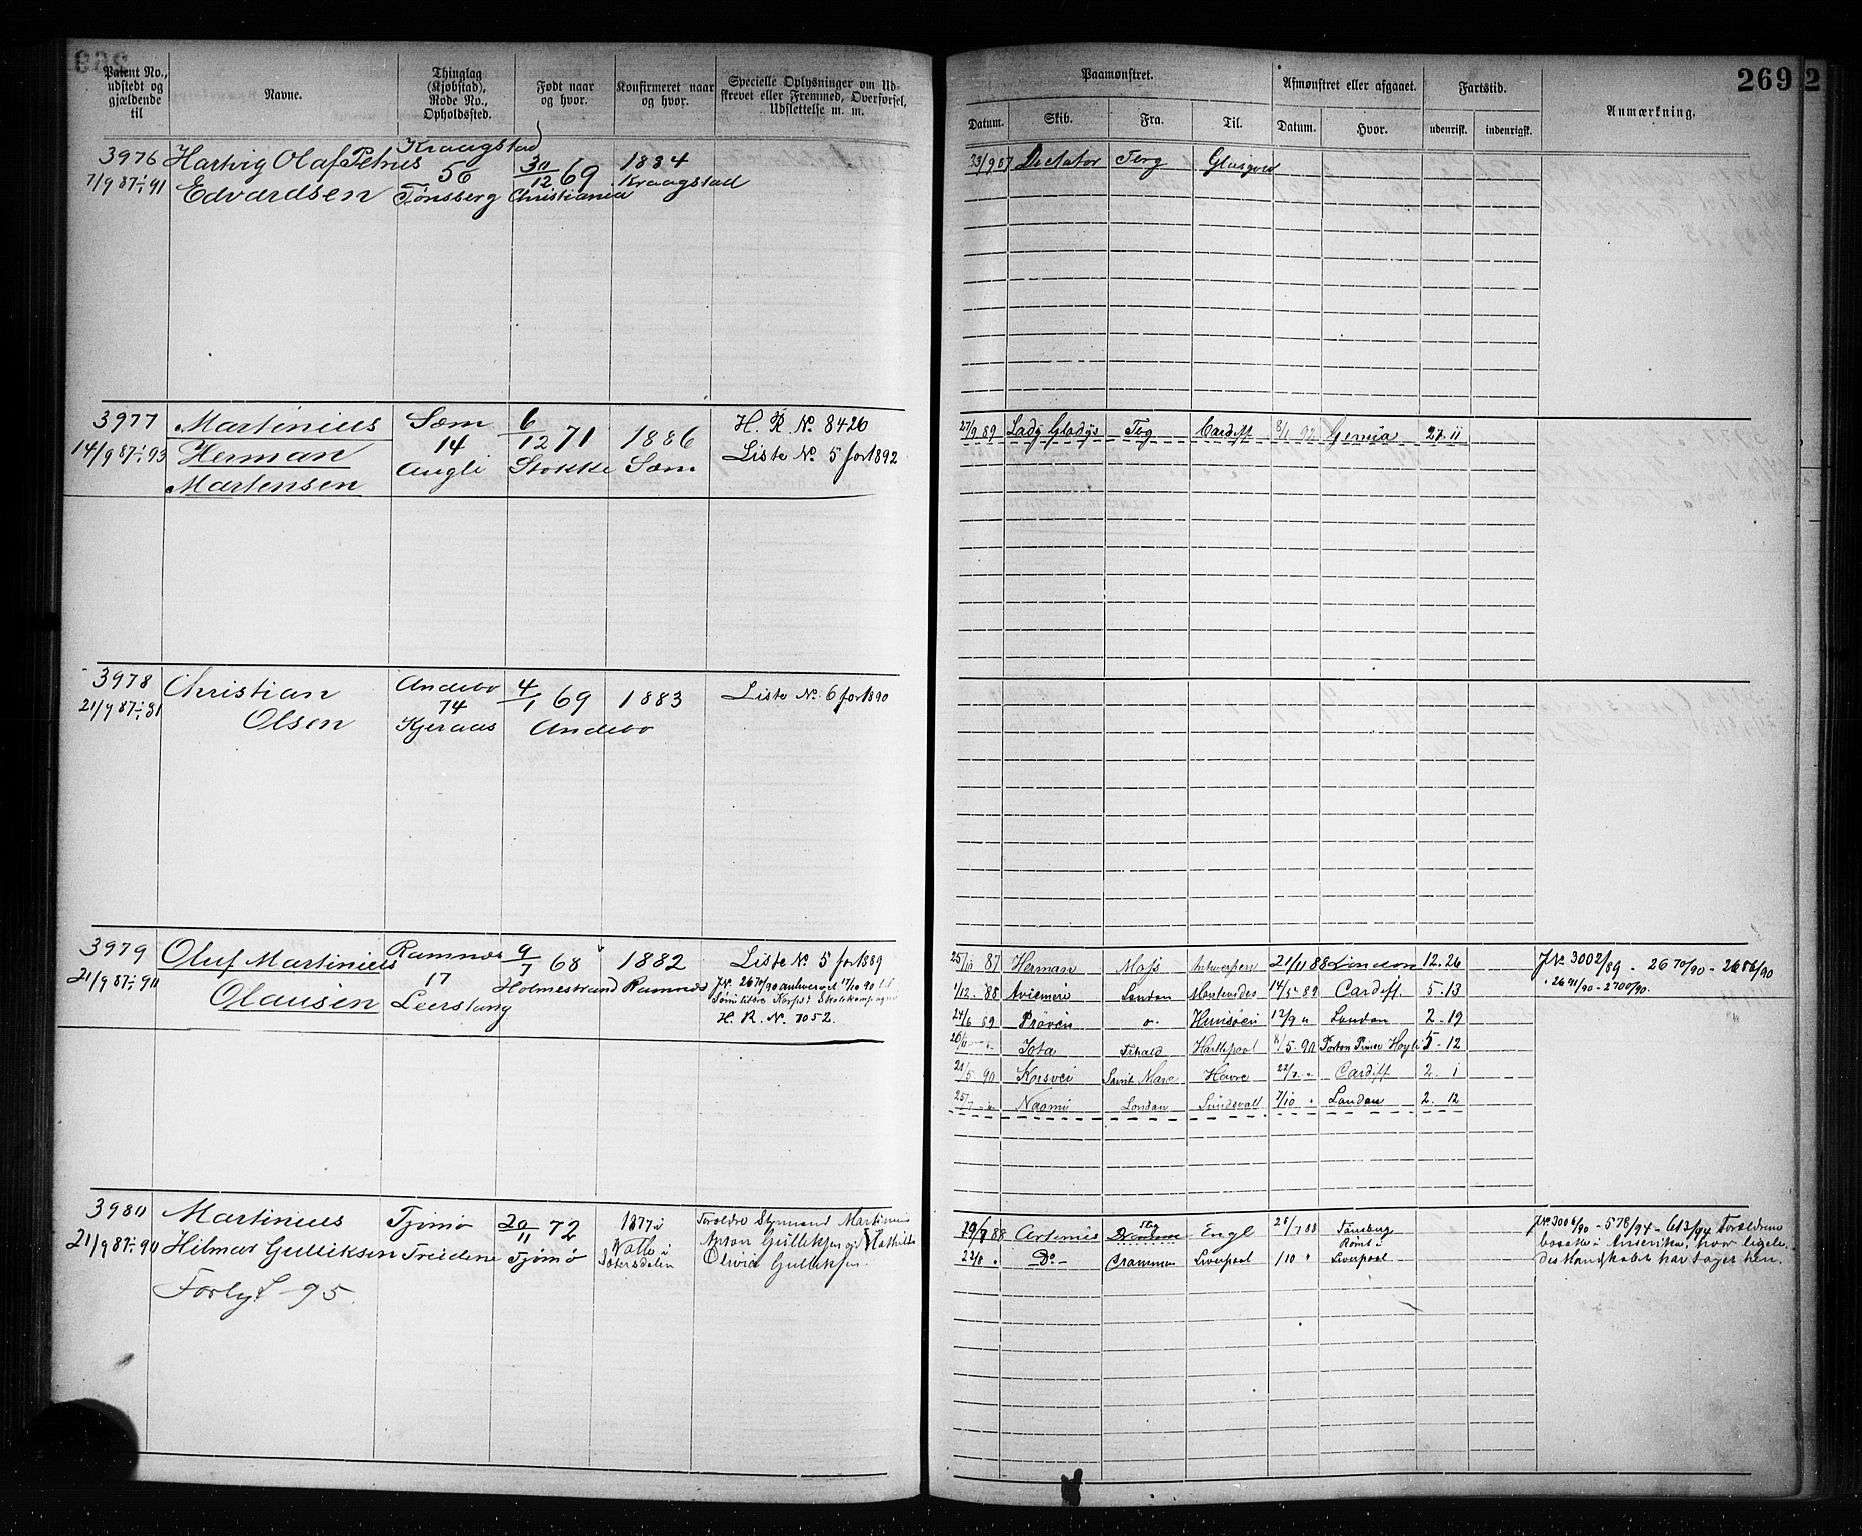 269
Patent No., udstedt og gjældende til
Navne.
Thinglag (Kjøbstad), Rode No., Opholdssted.
Født naar og hvor.
Konfirmeret naar og hvor.
Specielle Oplysninger om Udskrevet eller Fremmed, Overførsel, Udslettelse m. m.
Paamønstret.
Afmønstret eller afgaaet.
Fartstid.
Anmærkning.
Datum. Skib. Fra. Til. Datum. Hvor. udenrigsk. indenrigsk.
3976 Hartvig Olaf Petrus Kraagstad 30/12 69 1884
7/9 87-1/1 91 Edvardsen 56 Christiania Kraagstad
Tønsberg
23/9 87 Dictator Tbrg Glasgow
3977 Martinius Sæm 6/12 71 1886 H. R. No. 8426
14/9 87-1/1 93 Herman 14 Stokke Sæm Liste No. 5 for 1892
Martensen Augli
27/9 89 Lady Gladys Tbg Cardiff 8/1 92 Genua 27 11
3978 Christian Andebo 4/1 69 1883 Liste No. 6 for 1890
21/9 87-1/1 91 Olsen 74 Andebo
Kjeraas
3979 Oluf Martinius Ramnæs 9/7 68 1882 Liste No. 5 for 1889
21/9 87-1/1 90 Olausen 17 Holmestrand Ramnæs
Leerstang H. R. N. 7052.
25/10 87 Herman Moss Antwerpen 21/11 88 London 12. 26
1/12 88 London 14/5 89 Cardiff 5. 13
24/6 89 Prøven 12/9 London 2. 19
Jota Hartlepool 5. 12
21/5 90 Korsvei Havre Cardiff 2. 1
25/7 Naomi London Sundsvall 7/10 London 2. 12
JNo. 3002/89 - 2670/90 - 2686/90
2691/90 - 2700/90.
3980 Martinius Tjømø 20/11 72 1877 i Forældre Styrmand Martinius
21/9 87-1/1 90 Hilmar Gulliksen Treidene Tjømø Valle i Anton Gulliksen og Mathilde
Sætersdalen Olivia Gulliksen.
Forlyst -95
88 Artemis Tbg Engl 28/7 88 Tønsberg
22/8 Do - Drammen Liverpool 1/10 Liverpool
- 578/94 - 613/94 Forældrene
bosatte i Amerika, hvor ligele-
des Mandskabet har taget hen.